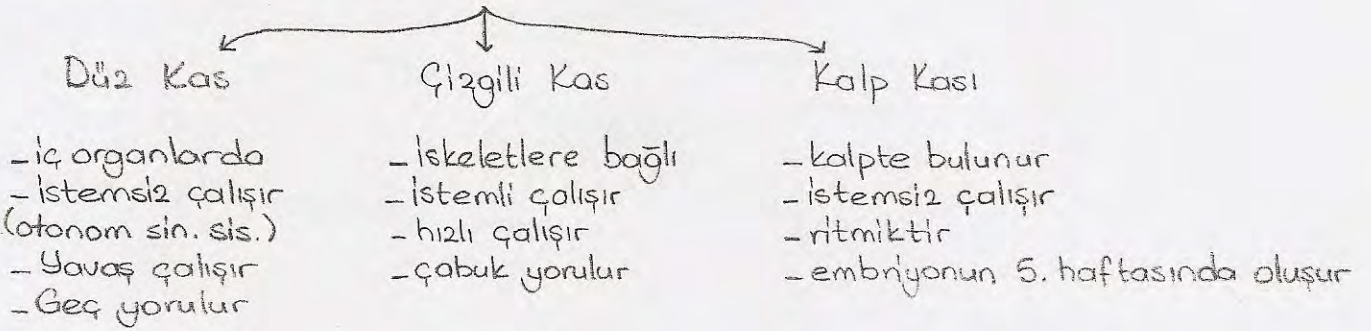 Düz Kas
- iç organlarda
- istemsiz çalışır
(otonom sin. sis.)
- Yavaş çalışır
- Geç yorulur
Çizgili Kas
- iskeletlere bağlı
- istemli çalışır
- hızlı çalışır
- çabuk yorulur
Kalp Kası
- kalpte bulunur
- istemsiz çalışır
- ritmiktir
- embriyonun 5. haftasında oluşur